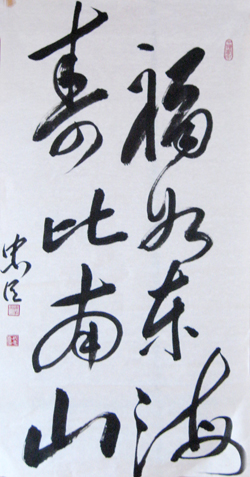 福如东海
寿比南山
忠臣